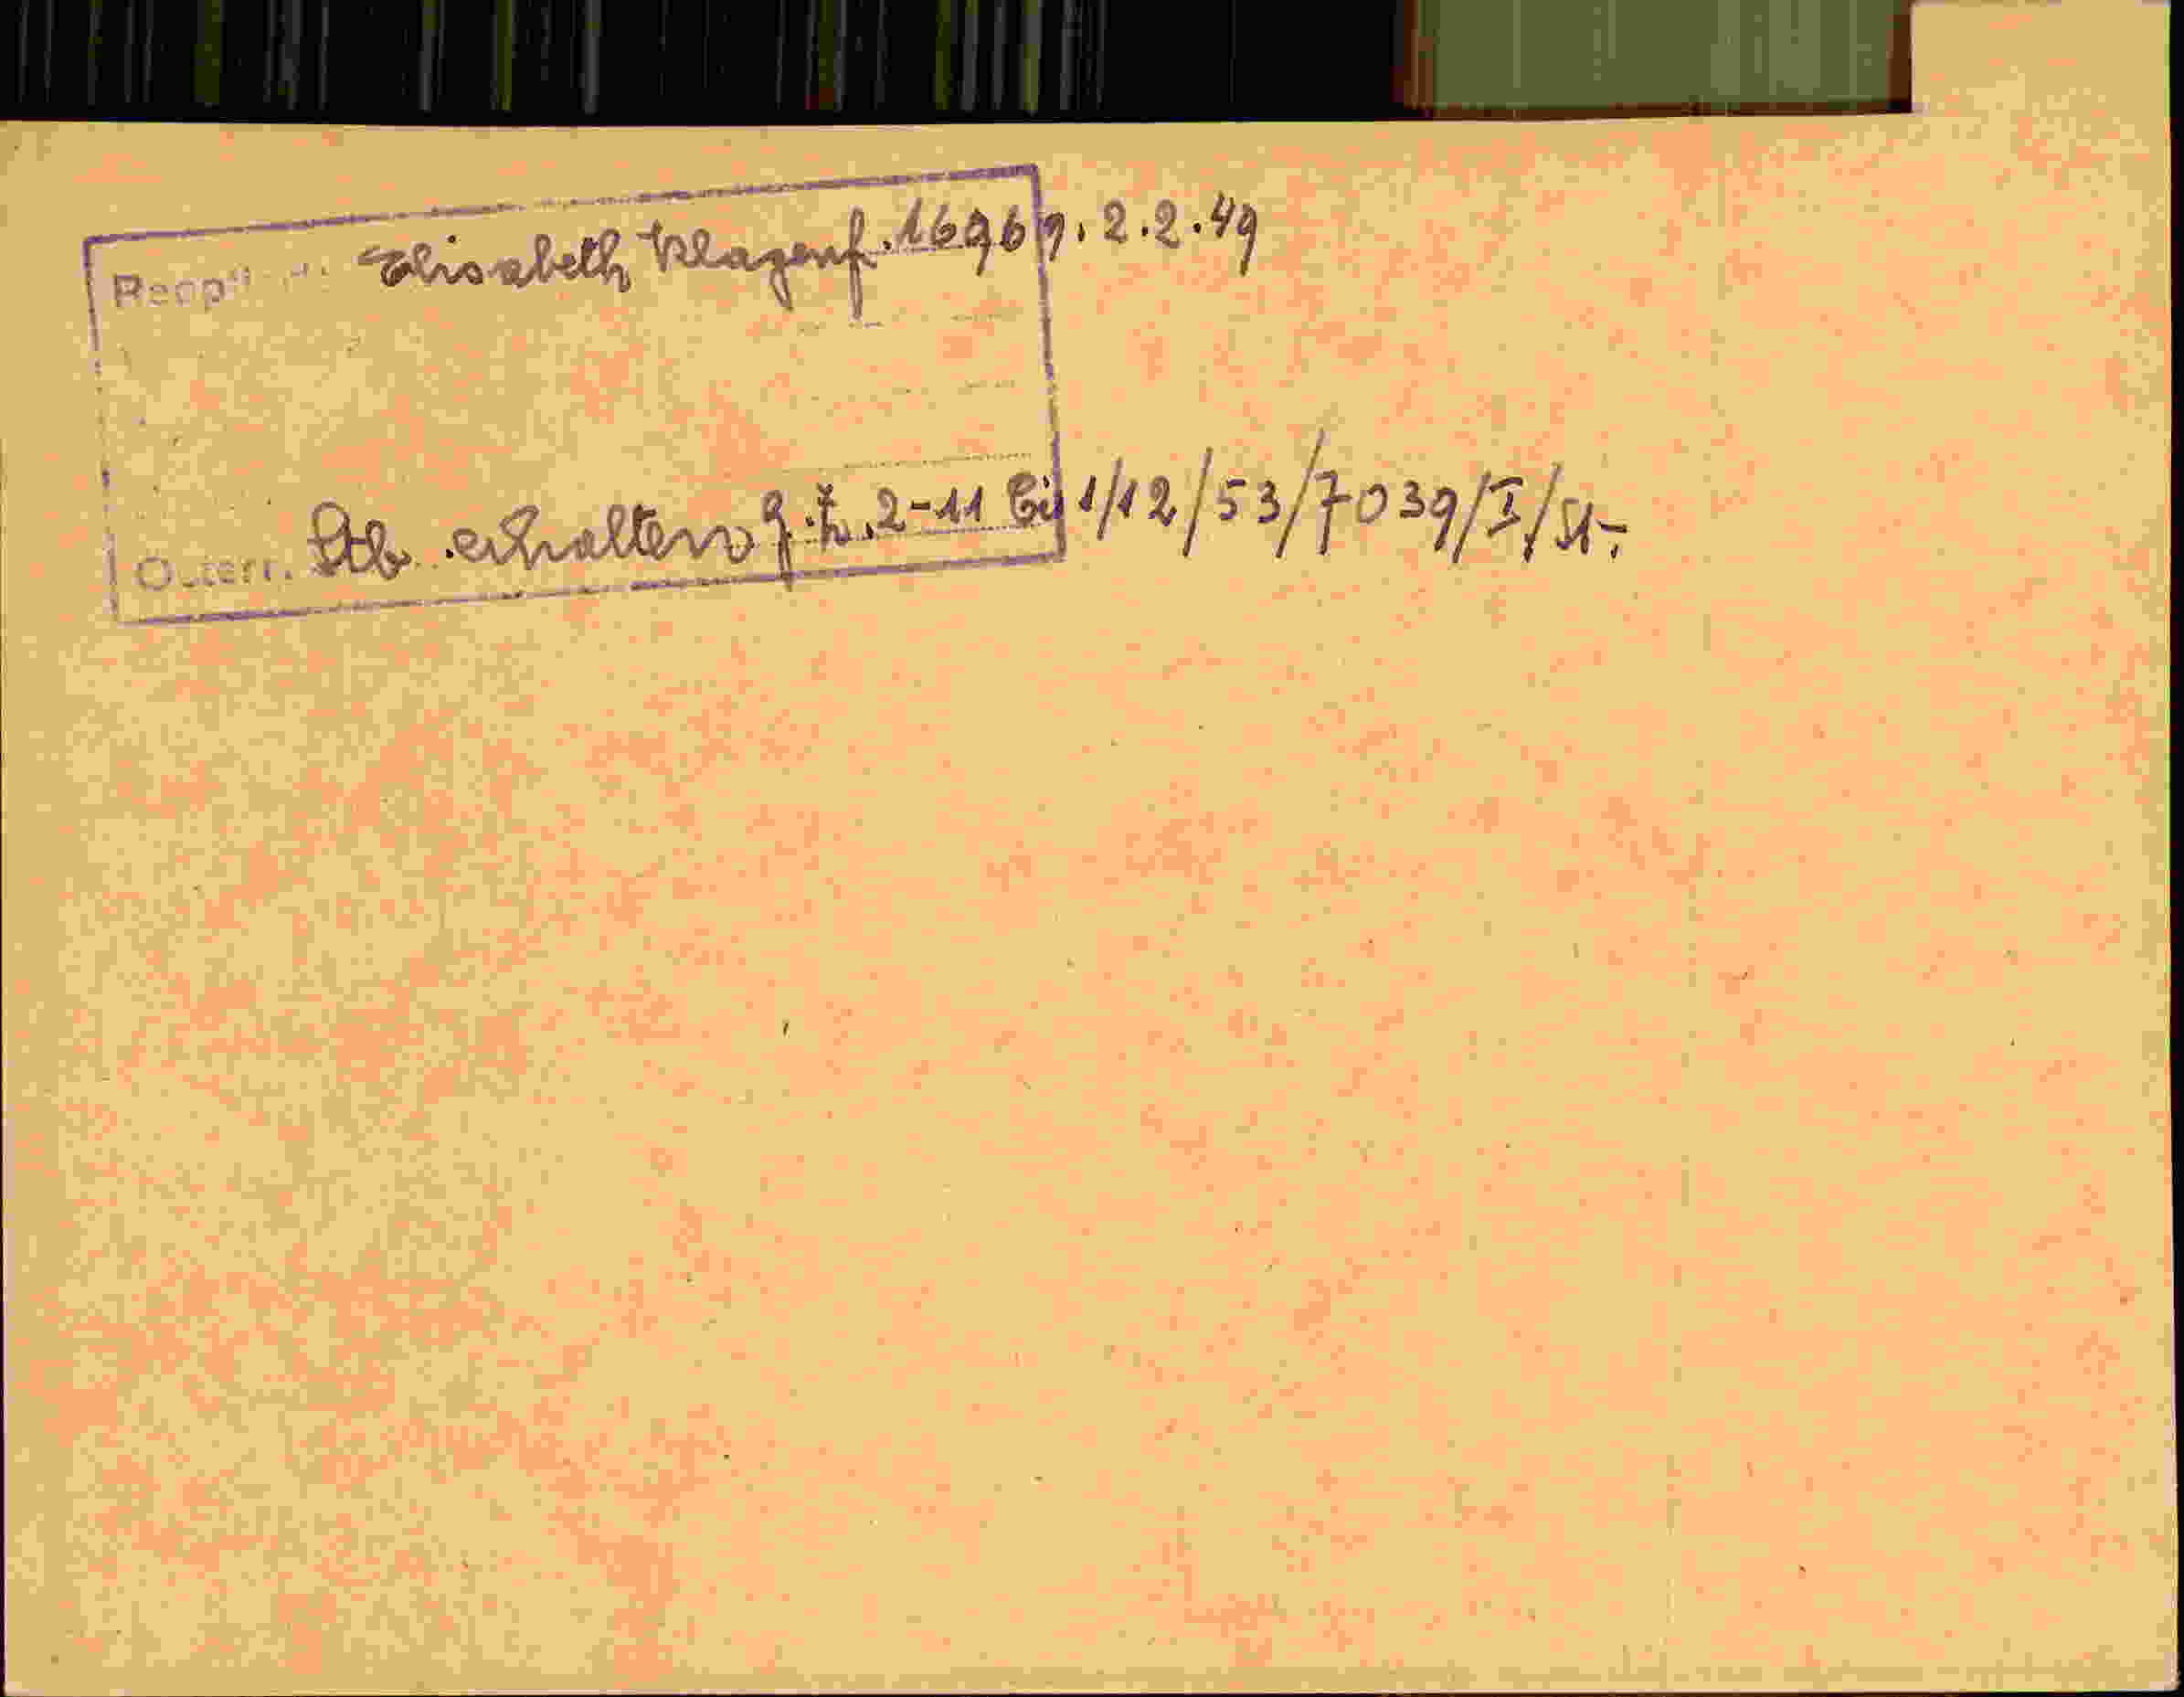 Elisabeth Klagenf. 16969. 2.2.49
Österr. Stb. erhalten g.Z. 2-11 Ei 1/12/53/7039/I/St.